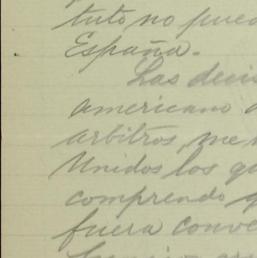 tuto no pued
España.
Las decis
americano
arbitros, me
Unidos los qu
comprendo q
fuera conve